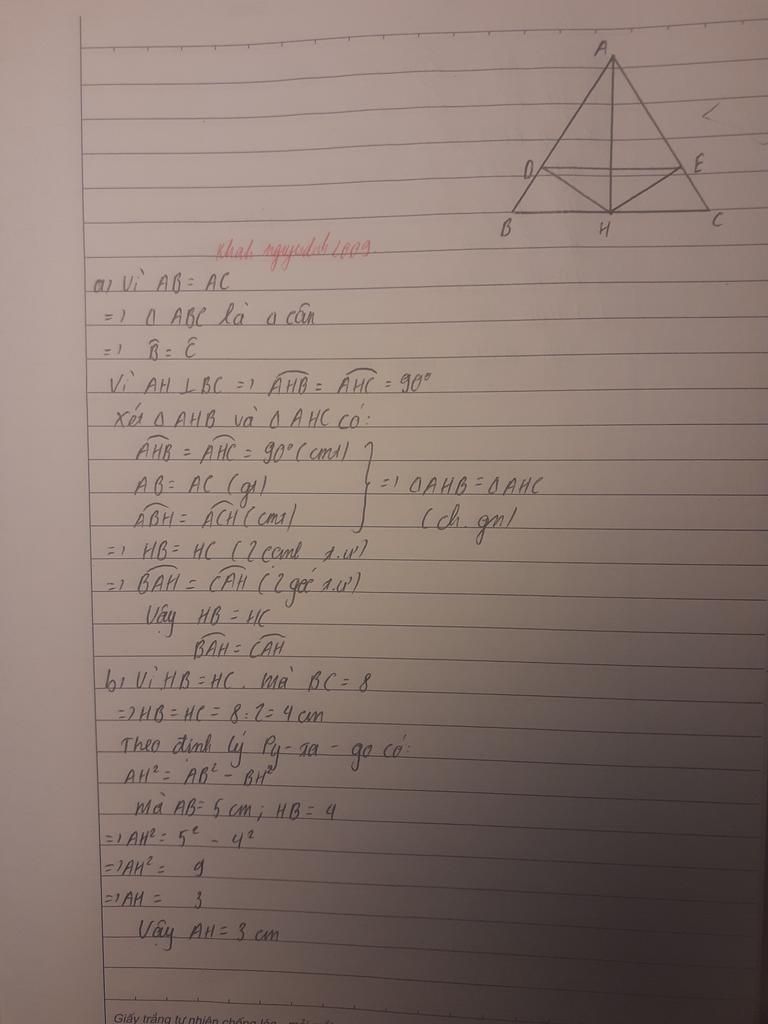 A
D
E
B
H
C
a) Vì AB = AC
=) Δ ABC là Δ cân
=) B̂ = Ĉ
Vì AH ⊥ BC =) AHB = AHC = 90°
Xét Δ AHB và Δ AHC có:
AHB = AHC = 90° (cmt)
AB = AC (gt) =) ΔAHB = ΔAHC
ABH = ACH (cmt) (ch. gn)
=) HB = HC (2 cạnh t.ư)
=) BAH = CAH (2 góc t.ư)
Vậy HB = HC
BAH = CAH
b) Vì HB = HC. mà BC = 8
=) HB = HC = 8 : 2 = 4 cm
Theo định lý Py-ta-go có:
AH² = AB² - BH²
mà AB = 5 cm; HB = 4
=) AH² = 5² - 4²
=) AH² = 9
=) AH = 3
Vậy AH = 3 cm
Giấy trắng tự nhiên chống lóa